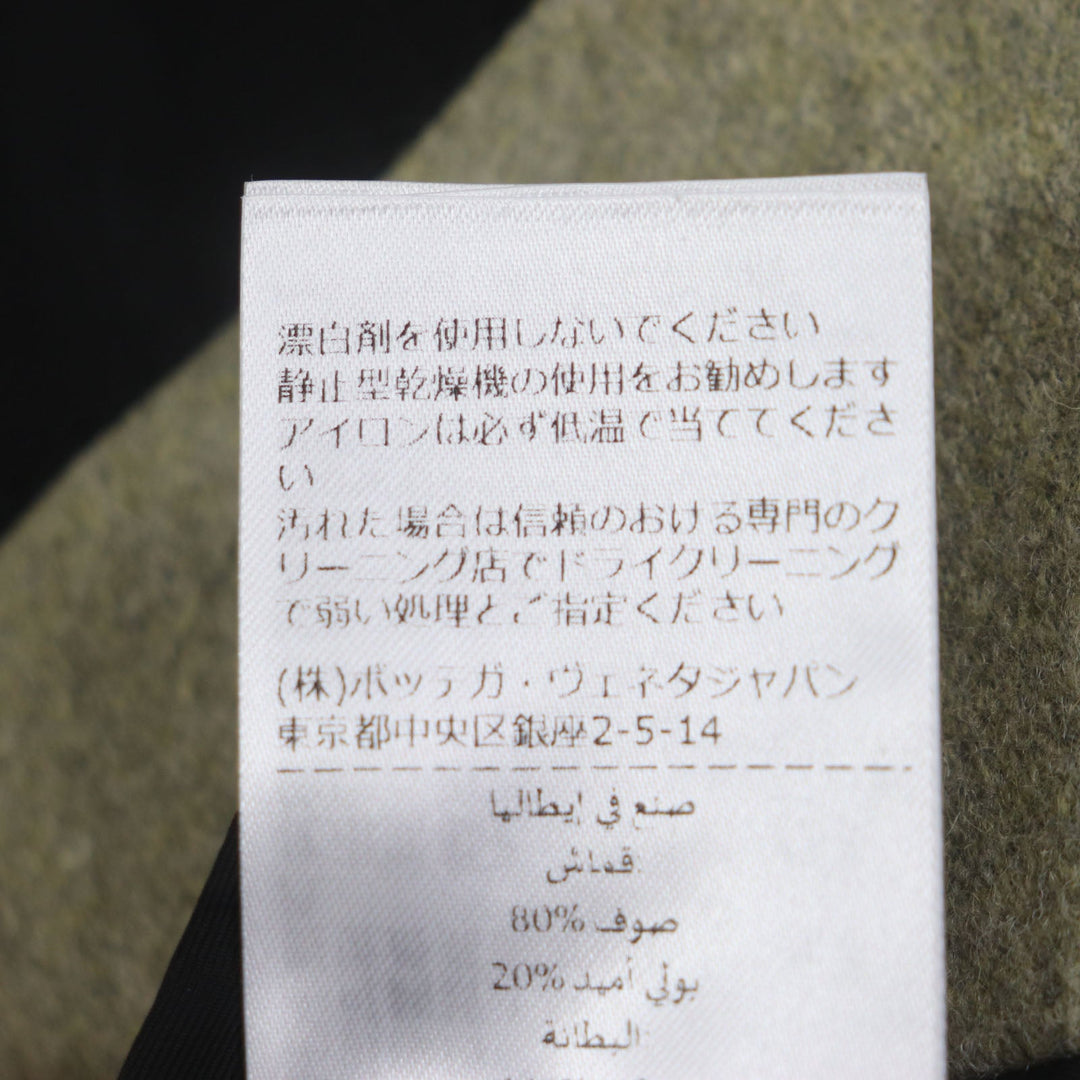 漂白剤を使用しないでください
静止型乾燥機の使用をお勧めします
アイロンは必ず低温で当ててくださ
い
汚れた場合は信頼のおける専門のク
リーニング店でドライクリーニング
で弱い処理とご指定ください
(株)ボッテガ・ヴェネタジャパン
東京都中央区銀座2-5-14
صنع في إيطاليا
قماش:
80% صوف
20% بولي أميد
البطانة: